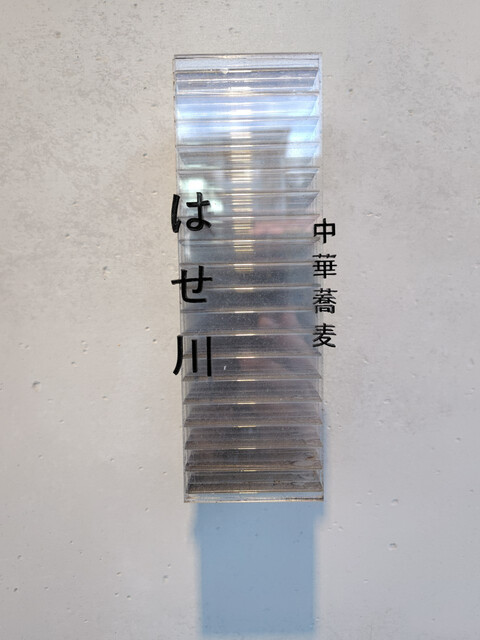 中華蕎麦
はせ川